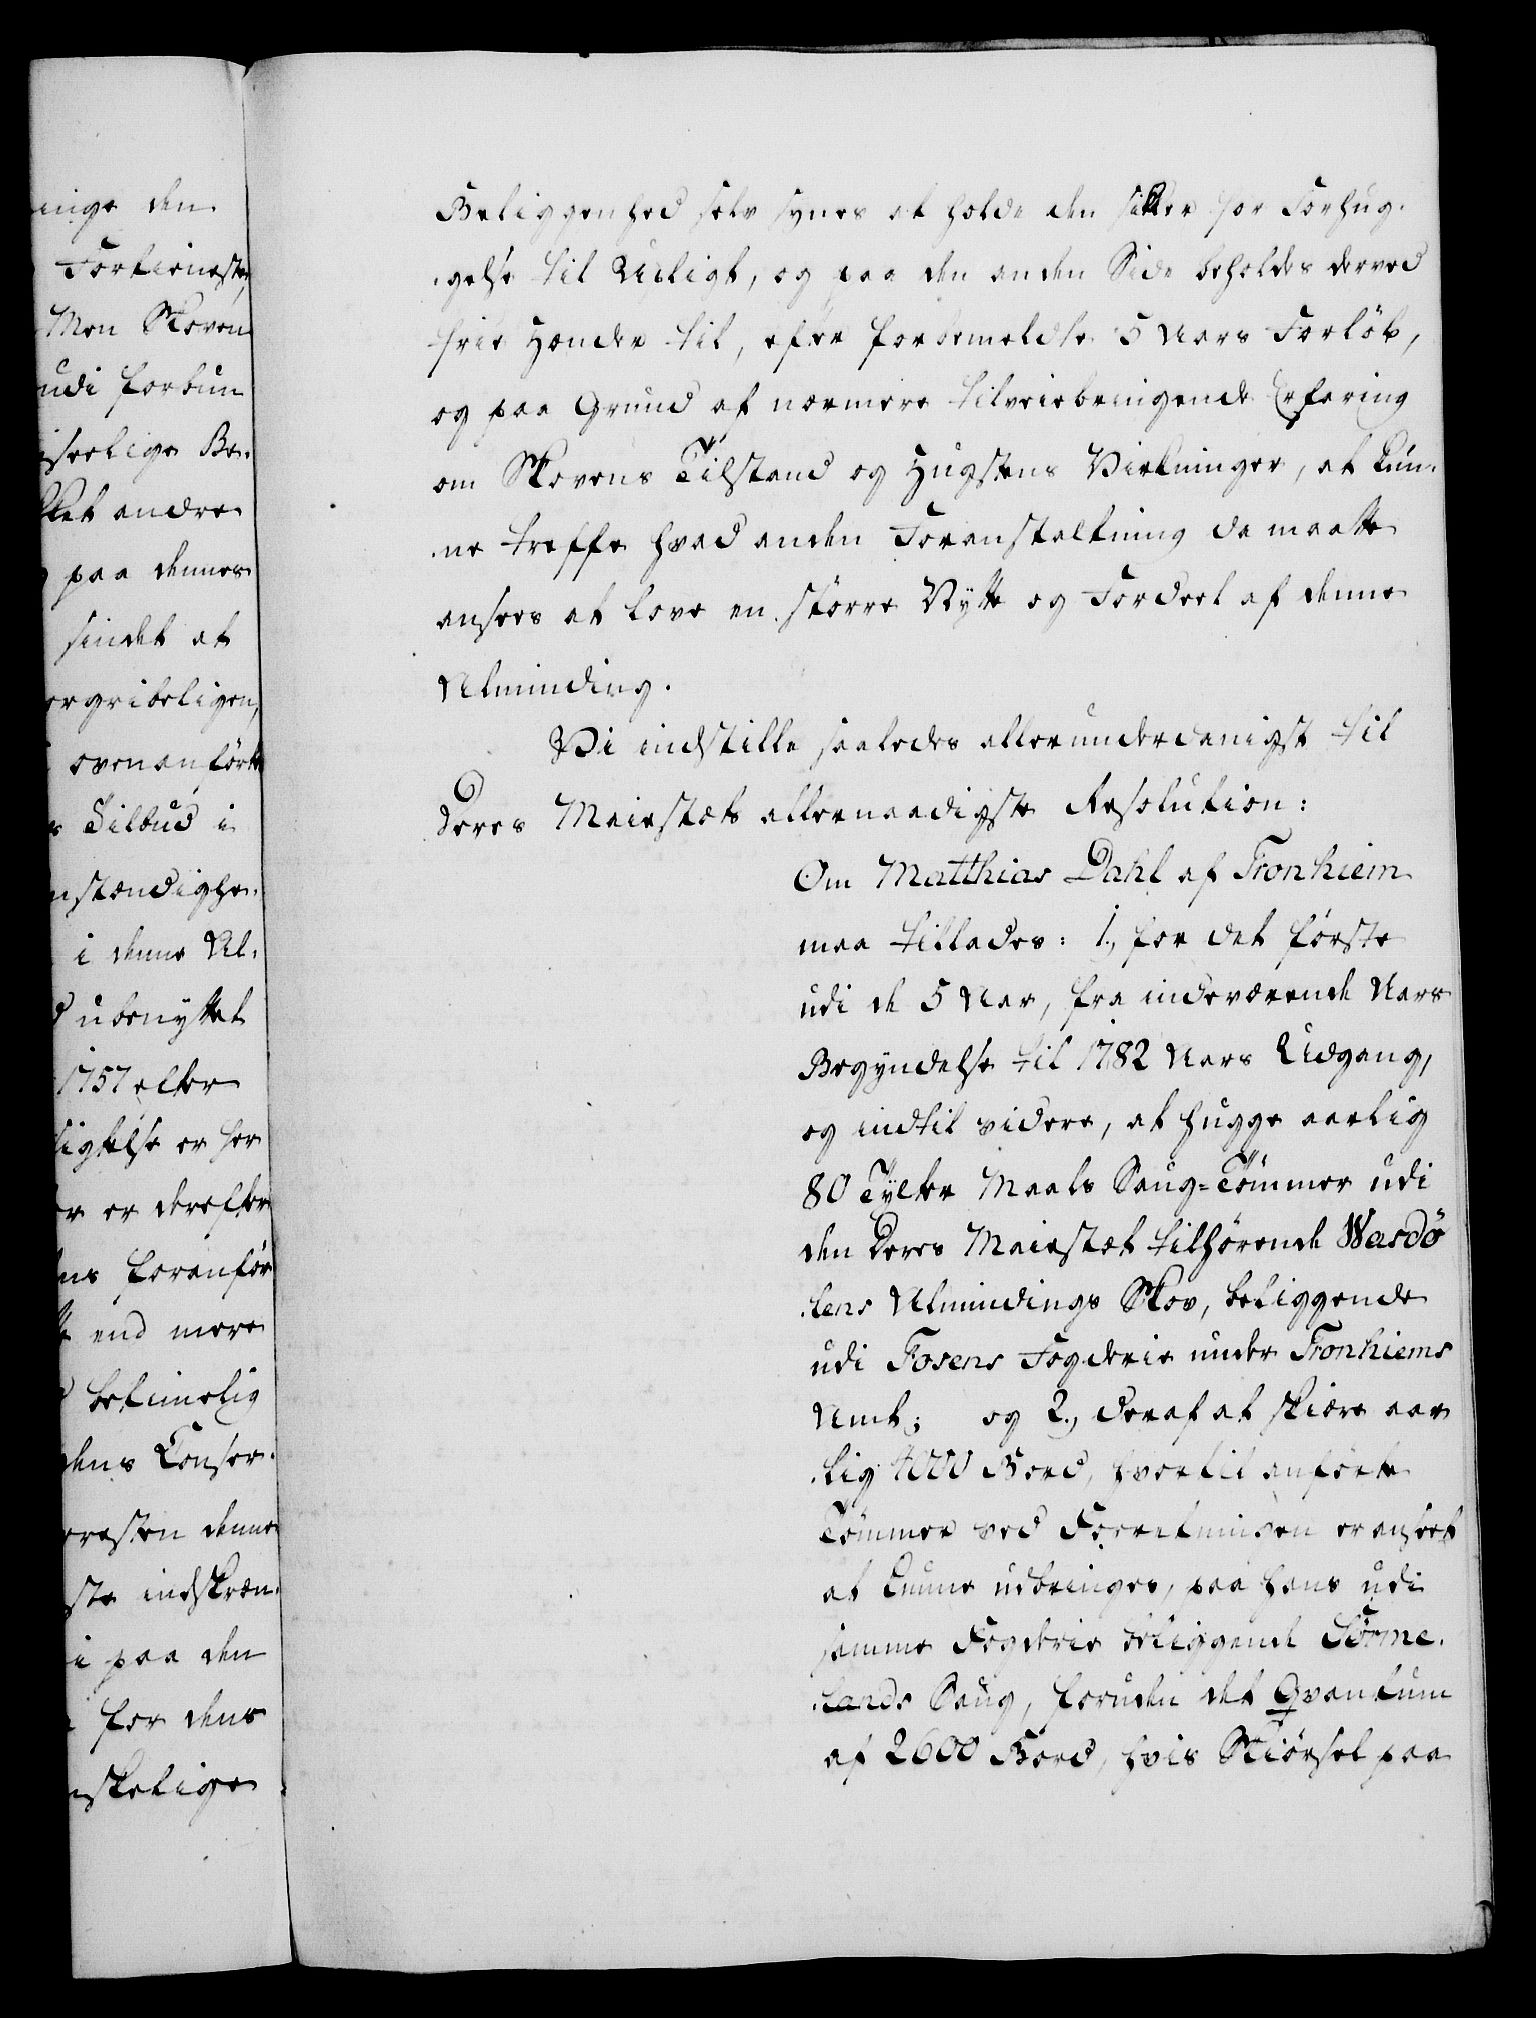 inge den
Fortieneste,
Men Skoven
udi forbun
seelige Be-
ket andre
paa dennes
sindet at
ergribeligen,
ovenanførte
s Tilbud i
nstændighe-
i denne Al-
d ubenyttet
1757 eller
ligtelse er her
er er derefter
ens foranfør
end mere
betimelig
dens Conser-
eresten denne
ste indskræn-
i paa den
for dens
nskelige
Beliggenhed selv synes at holde den sikker for Forhug-
-gelse til Udligt, og paa den anden Side beholdes derved
frie Hænder til, efter forbemeldte 5 Aars Forløb,
og paa Grund af nærmere tilveiebringende Erfaring
om Skovens Tilstand og Hugstens Virkninger, at kun-
-ne træffe hvad anden Foranstaltning da maatte
ansees at love en større Nytte og Fordeel af denne
Alminding.
Vi indstille saaledes allerunderdanigst til
Deres Maiestæts allernaadigste Resolution:
Om Matthias Dahl af Tronhiem
maa tillades: 1., for det første
udi de 5 Aar, fra indeværende Aars
Begyndelse til 1782 Aars Udgang,
og indtil videre, at hugge aarlig
80 Tylter Maals Saug-Tømmer udi
den Deres Maiestæt tilhørende Wasdø
-lens Almindings Skov, beliggende
udi Fosens Fogderie under Tronhiems
Amt; og 2., deraf at skiære aar
-lig 4000 Bord, hvortil anførte
Tømmer ved Forretningen er anseet
at kunne udbringes, paa hans udi
samme Fogderie beliggende Sørme-
-lands Saug, foruden det Qvantum
af 2600 Bord, hvis Skiørsel paa